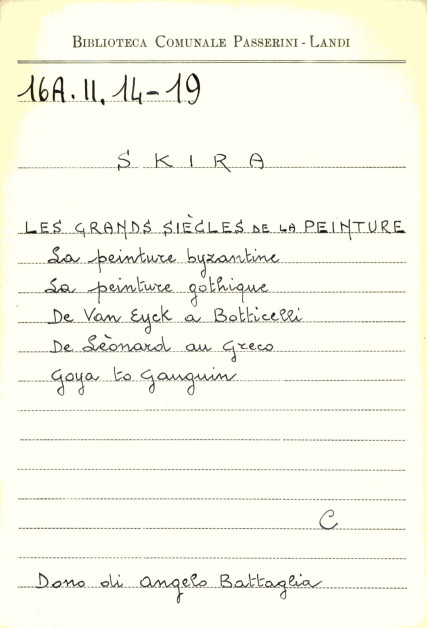 BIBLIOTECA COMUNALE PASSERINI - LANDI
16A. II. 14-19
SKIRA
LES GRANDS SIÈCLES DE LA PEINTURE
La peinture byzantine
La peinture gothique
De Van Eyck a Botticelli
De Lèonard au Greco
Goya to Gauguin
C
Dono di Angelo Battaglia